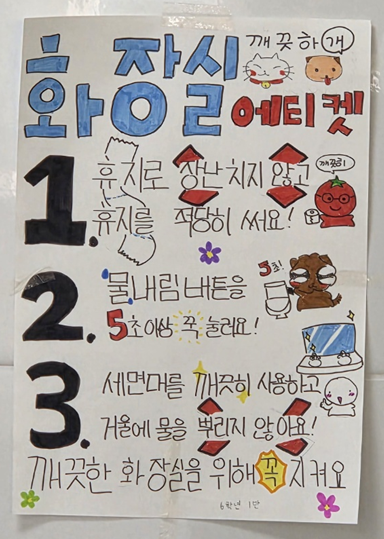 깨끗하개
화장실
에티켓
1. 휴지로 장난치지 않고
깨끗!
휴지를 적당히 써요!
2. 물내림 버튼을
5초!
5초이상 꾹 눌러요!
3. 세면대를 깨끗히 사용하고
거울에 물을 뿌리지 않아요!
깨끗한 화장실을 위해 꼭 지켜요
6학년 1반